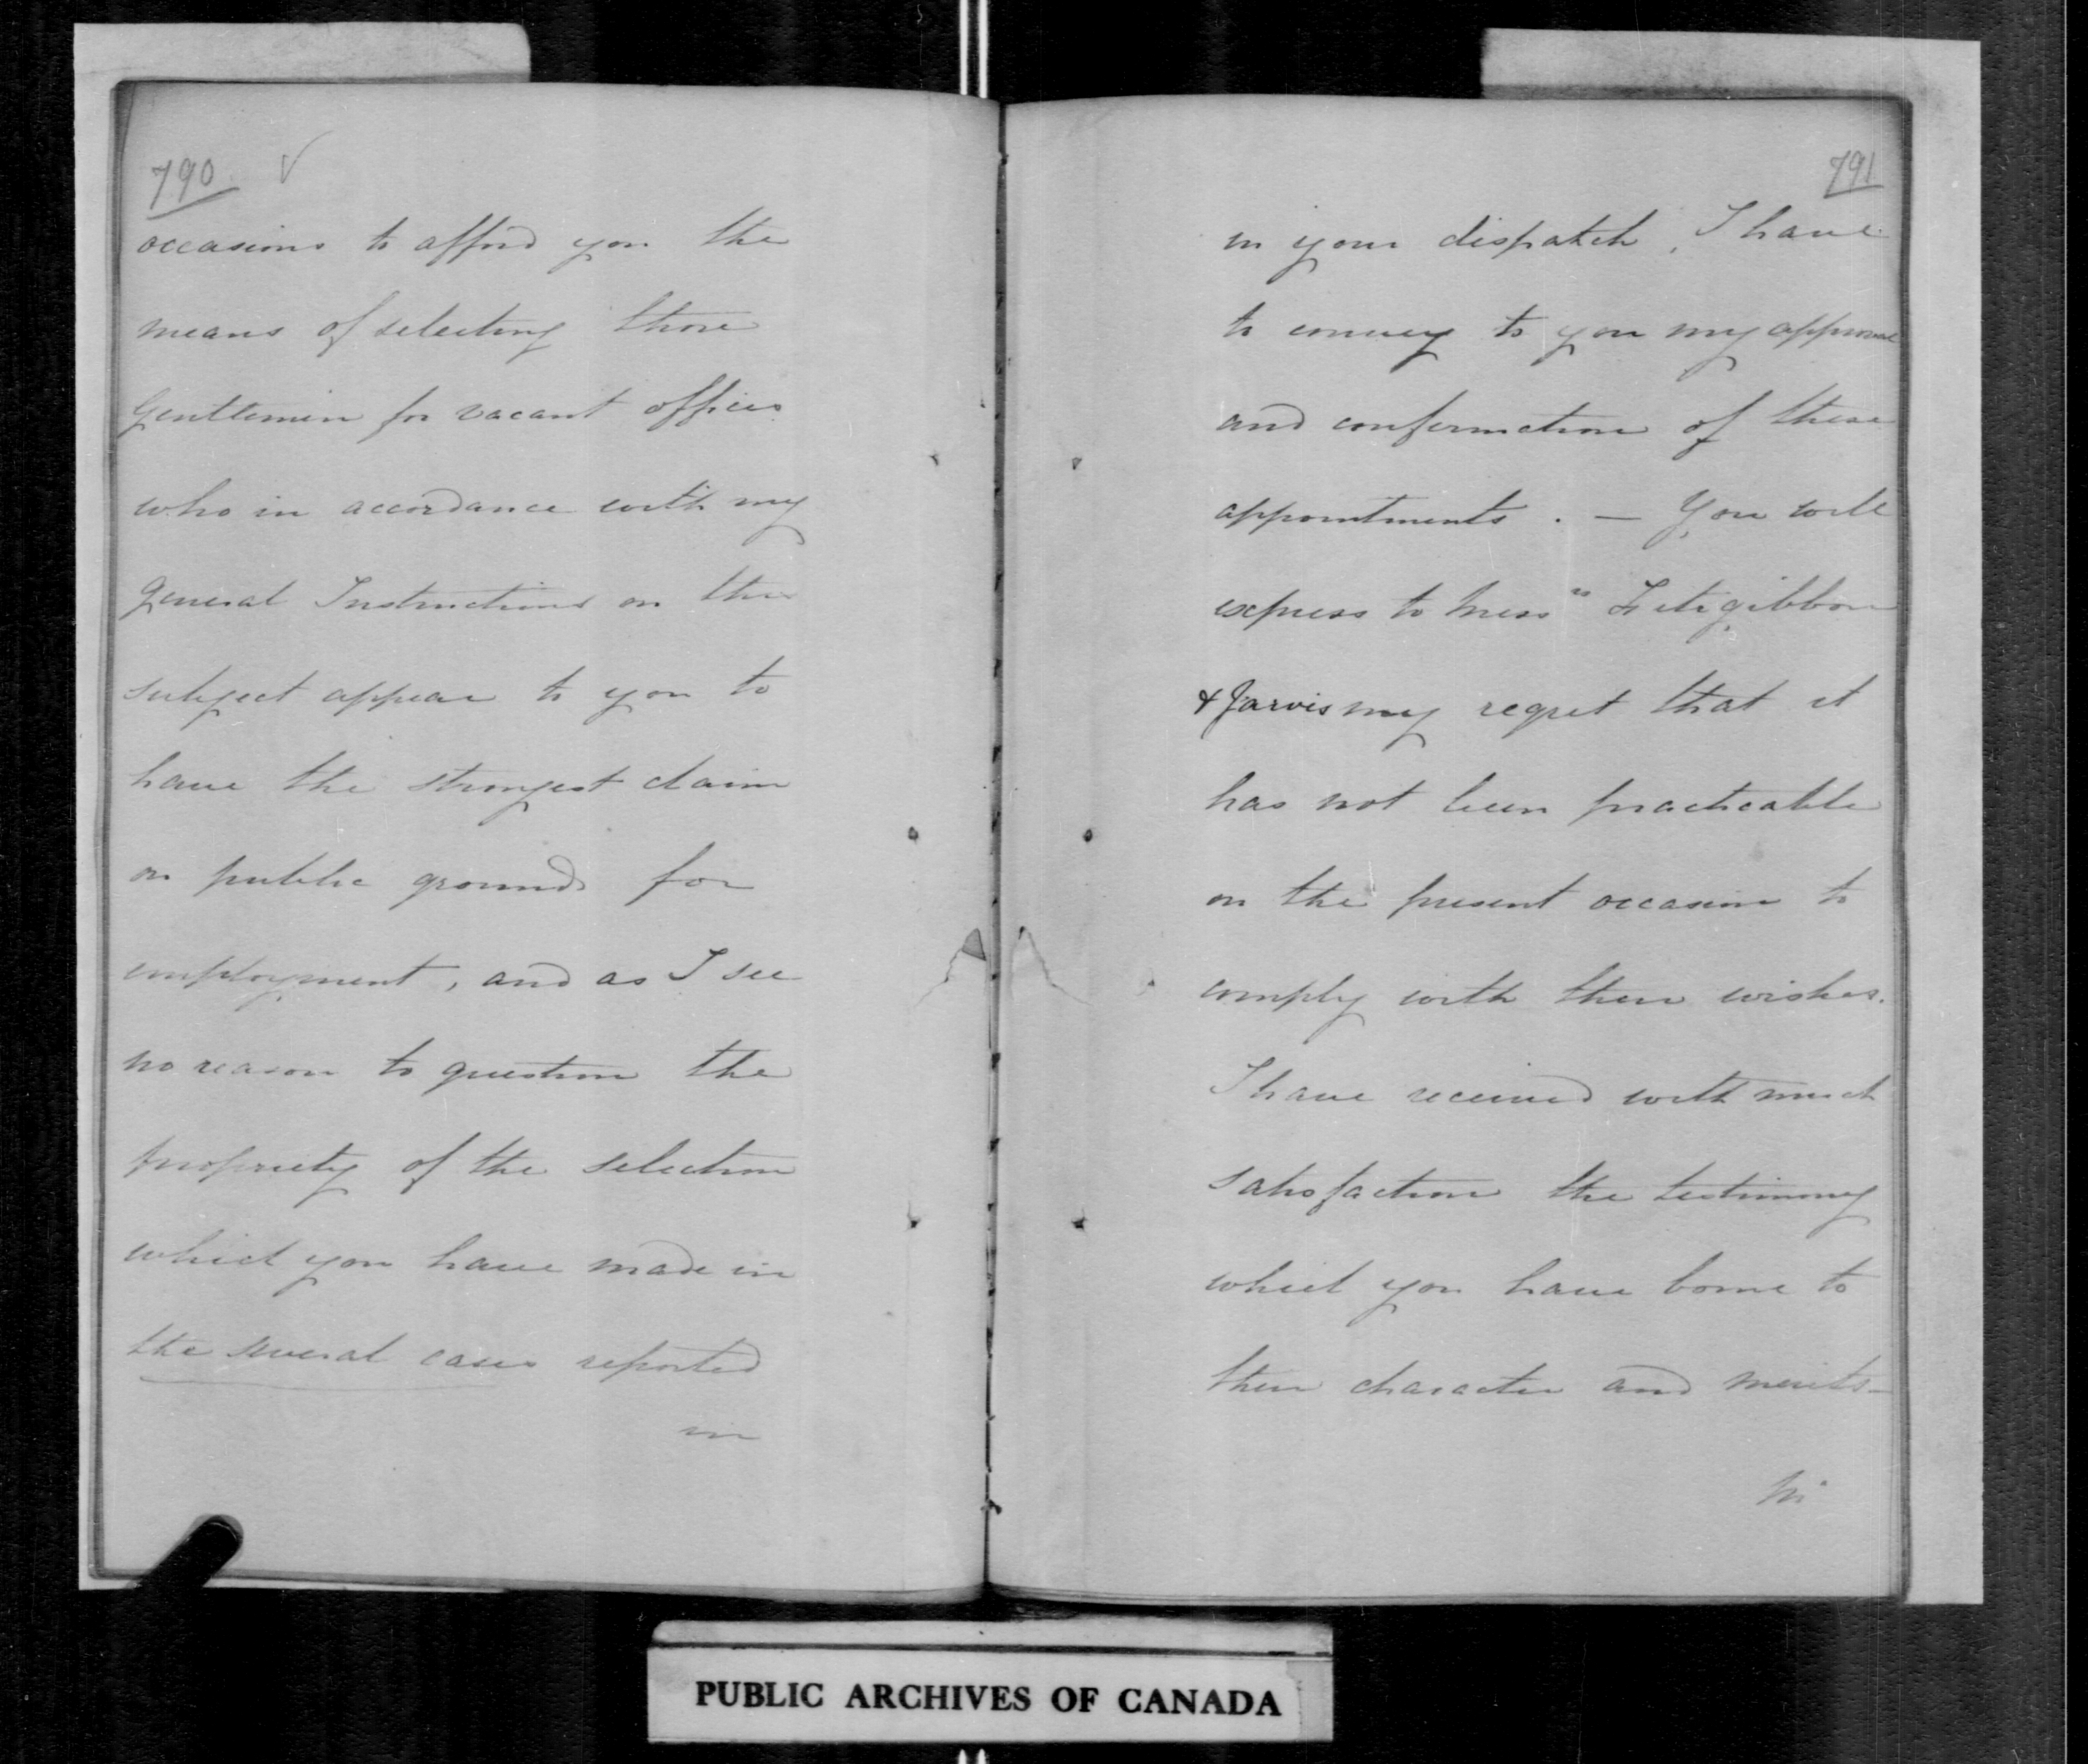 790 √
occasions to afford you the
means of selecting those
Gentlemen for vacant offices
who in accordance with my
general Instructions on the
subject appear to you to
have the strongest claim
on public grounds for
employment, and as I see
no reason to question the
propriety of the selection
which you have made in
the several cases reported
in
791
in your dispatch, I have
to convey to you my approval
and confirmation of these
appointments. — You will
express to Mess rs Fitzgibbon
& Jarvis my regret that it
has not been practicable
on the present occasion to
comply with their wishes.
I have received with much
satisfaction the testimony
which you have borne to
their character and merits
PUBLIC ARCHIVES OF CANADA